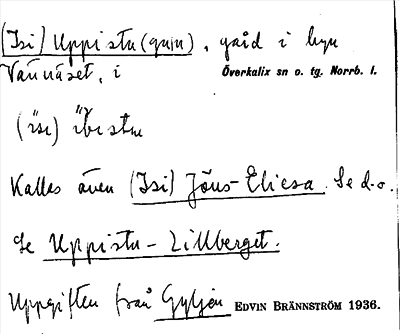 (Isi) Uppistu(gu|n), gård i byn
Vännäset, i Överkalix sn o. tg. Norrb. l.
(ı̈sı) ı̈bistu
Kallas även (Isi) Jöns-Eliesa. Se d.o.
Se Uppistu-Lillberget.
Uppgiften från Gyljen EDVIN BRÄNNSTRÖM 1936.